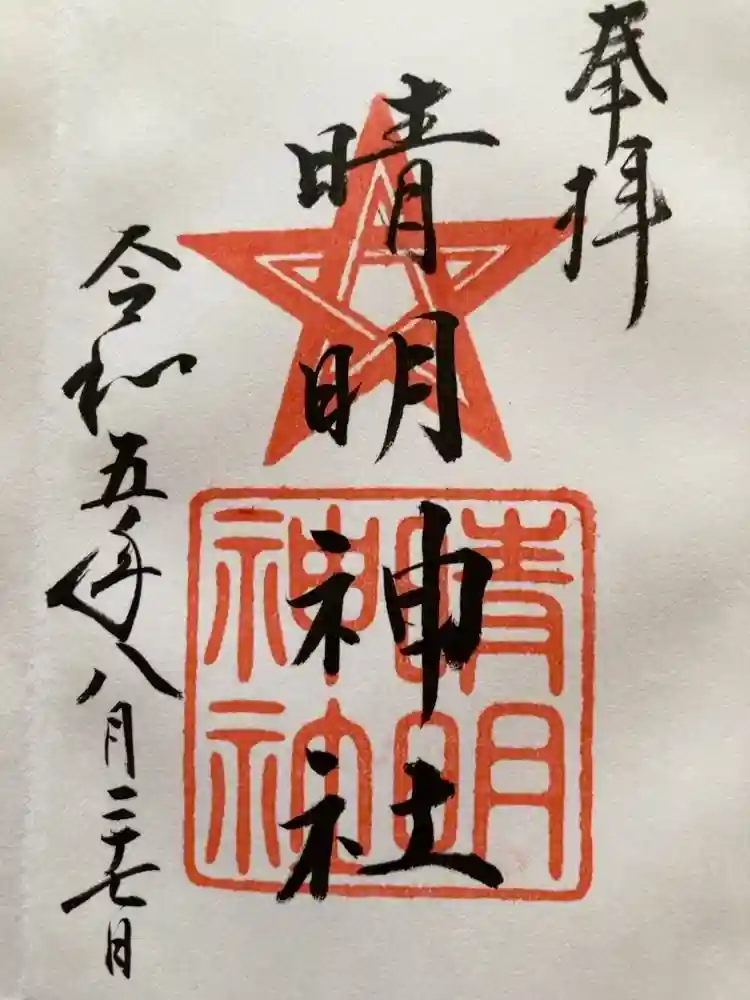 奉拝
晴明神社
晴明
神社
令和五年八月二十七日